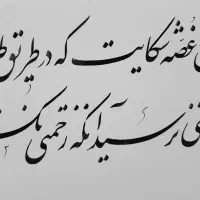 غصّه شکایت که در طریق
نرسید آنکه زحمتی